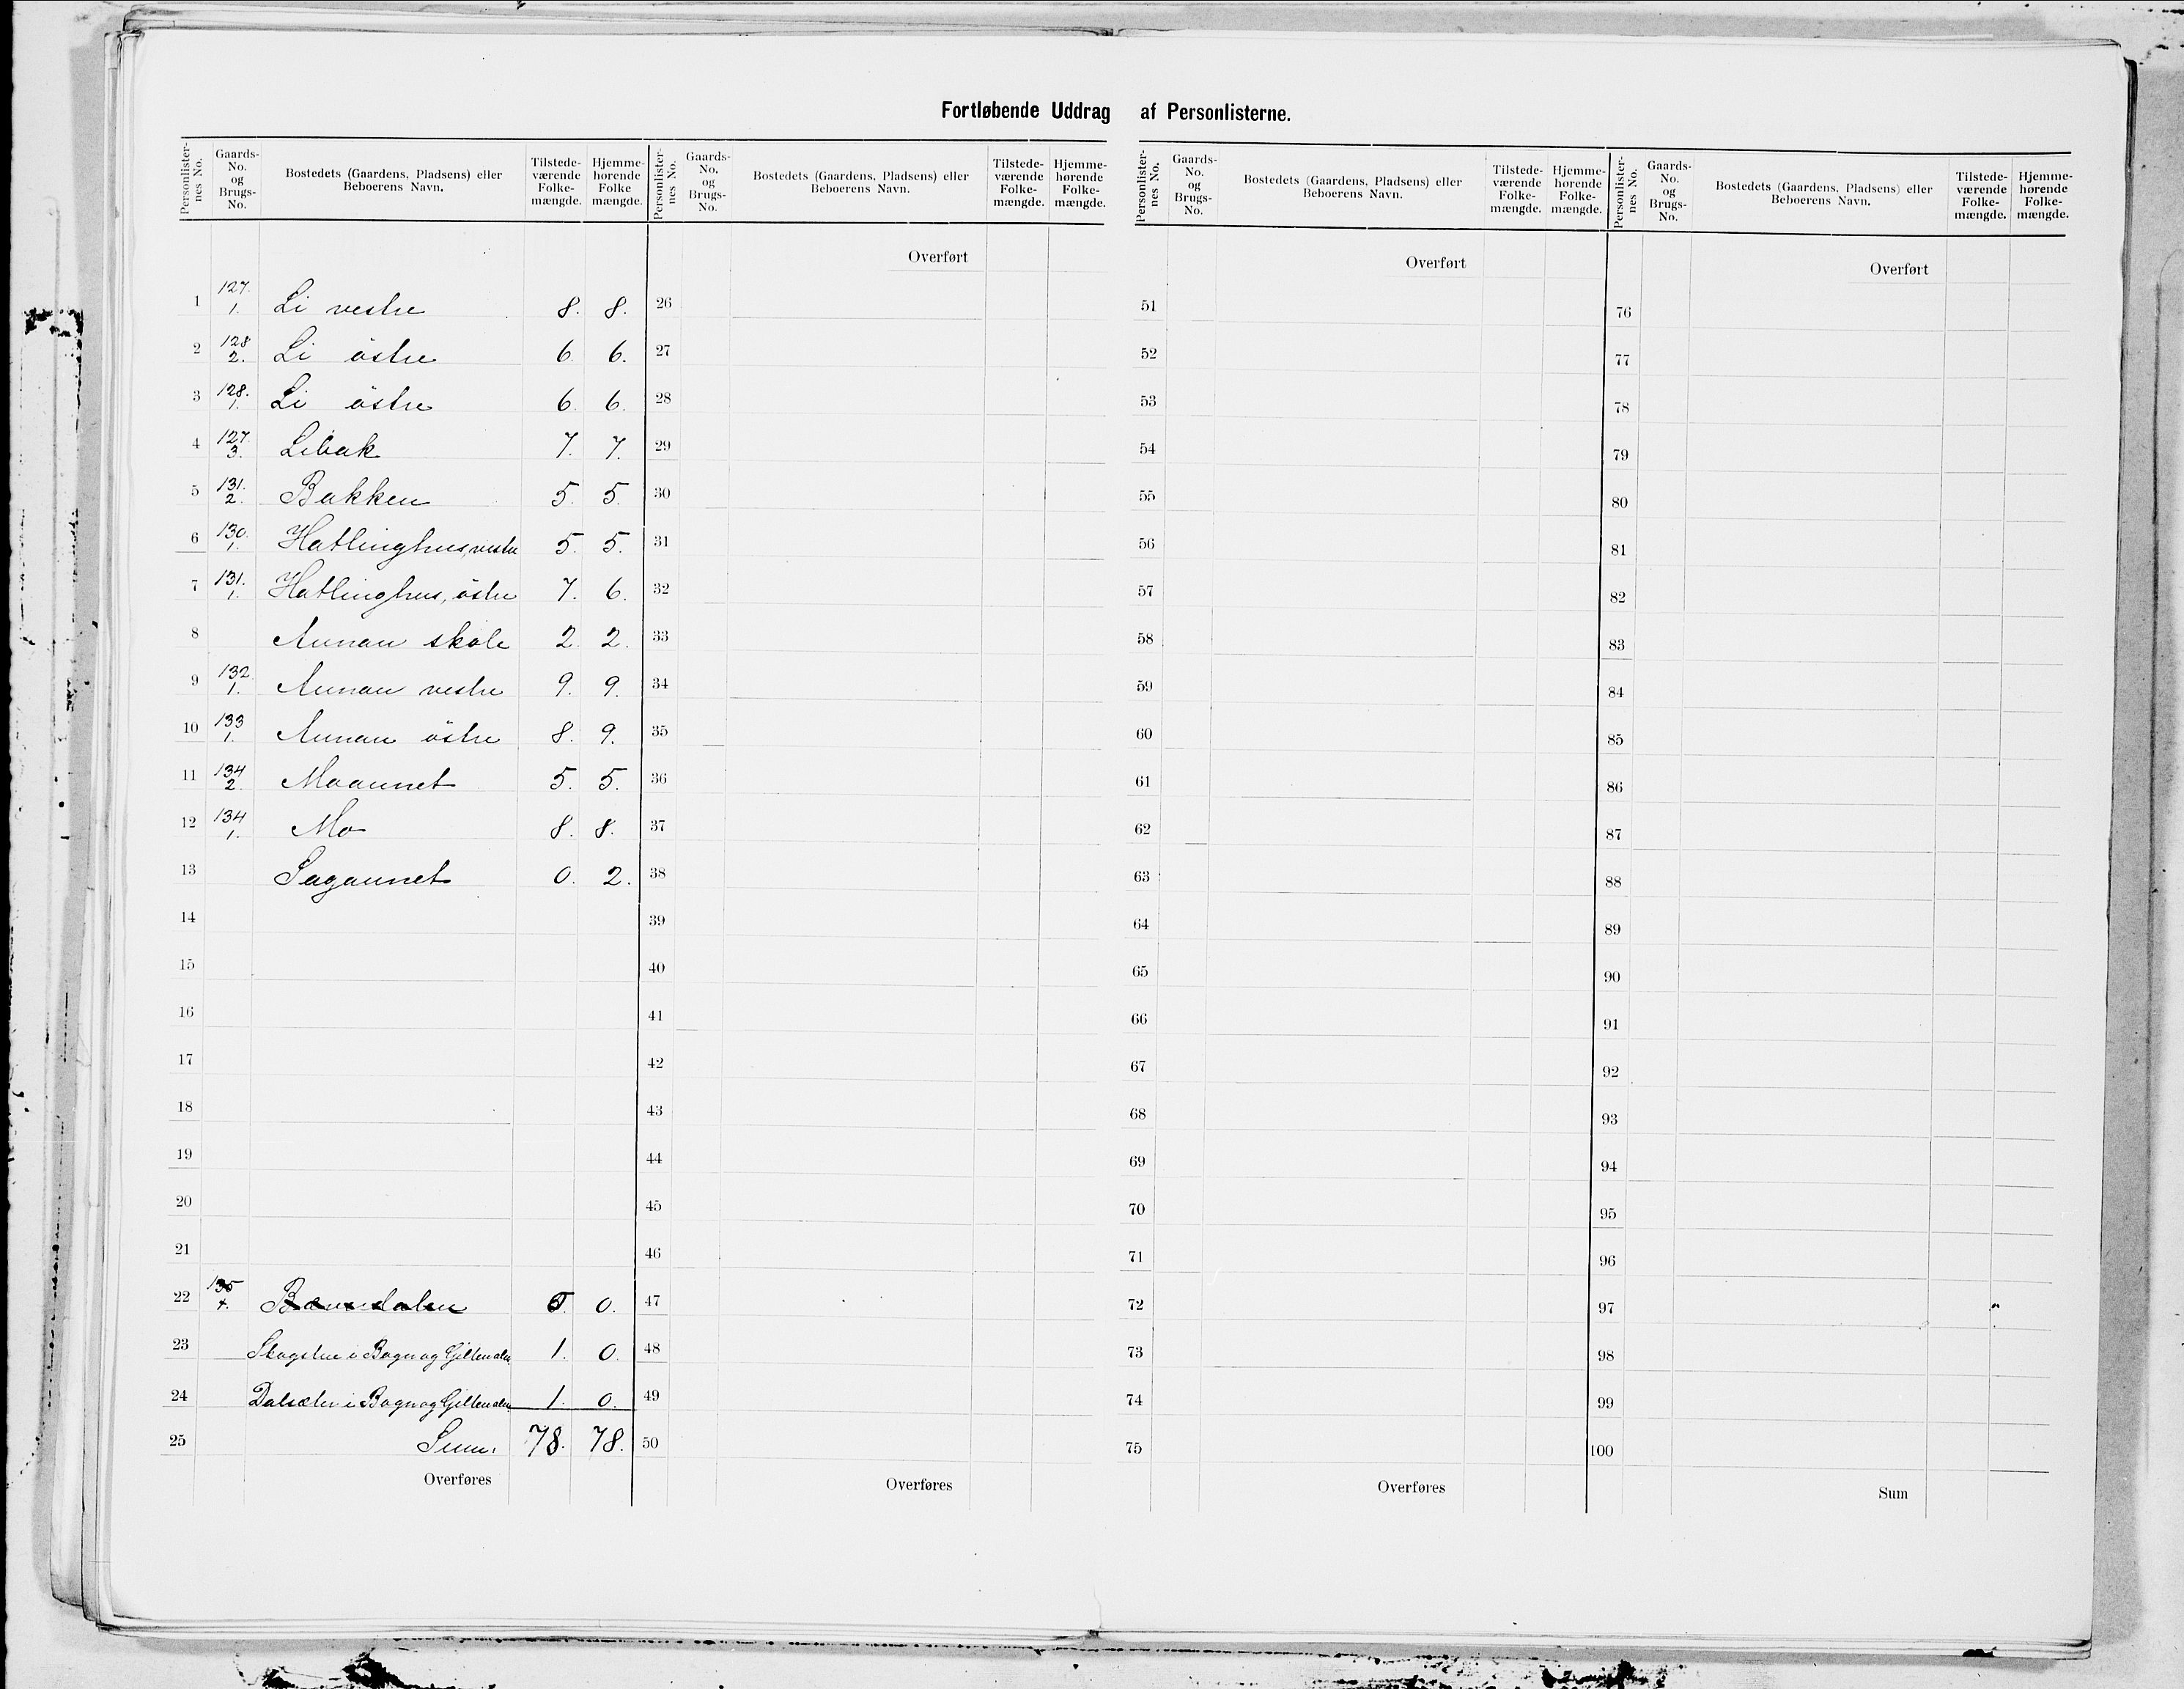 Fortløbende Uddrag af Personlisterne.
Personlister-nes No. Gaards-No. og Brugs-No. Bostedets (Gaardens, Pladsens) eller Beboerens Navn. Tilstede-værende Folke-mængde. Hjemme-hørende Folke mængde.
Overført
1 127. 1. Li vestre 8. 8.
2 128 2. Li östre 6. 6.
3 128. 1. Li östre 6. 6.
4 127. 3. Libak 7. 7.
5 131. 2. Bakken 5. 5.
6 130. 1. Hatlinghus, vestre 5. 5.
7 131. 1. Hatlinghus, östre 7. 6.
8 Aunan skole 2. 2.
9 132. 1. Aunan vestre 9. 9.
10 133 1. Aunan östre 8. 9.
11 134 2. Moaunet 5. 5.
12 134 1. Mo 8. 8.
13 Sagaunet 0. 2.
14
15
16
17
18
19
20
21
22 135 0.
23 Skogstue i Bogn og Gilten alm. 1. 0.
24 Dalsæter i Bogn og Gilten alm. 1. 0.
25 Sum. 78. 78.
Overføres
Personlister-nes No. Gaards-No. og Brugs-No. Bostedets (Gaardens, Pladsens) eller Beboerens Navn. Tilstede-værende Folke-mængde. Hjemme-hørende Folke-mængde.
Overført
26
27
28
29
30
31
32
33
34
35
36
37
38
39
40
41
42
43
44
45
46
47
48
49
50
Overføres
Personlister-nes No. Gaards-No. og Brugs-No. Bostedets (Gaardens, Pladsens) eller Beboerens Navn. Tilstede-værende Folke-mængde. Hjemme-hørende Folke-mængde.
Overført
51
52
53
54
55
56
57
58
59
60
61
62
63
64
65
66
67
68
69
70
71
72
73
74
75
Overføres
Personlister-nes No. Gaards-No. og Brugs-No. Bostedets (Gaardens, Pladsens) eller Beboerens Navn. Tilstede-værende Folke-mængde. Hjemme-hørende Folke-mængde.
Overført
76
77
78
79
80
81
82
83
84
85
86
87
88
89
90
91
92
93
94
95
96
97
98
99
100
Sum